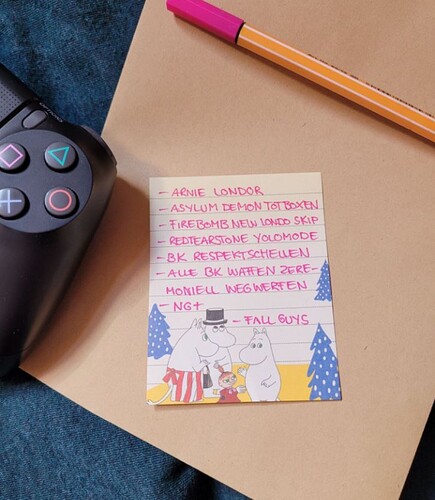 - ARNIE LONDOR
- ASYLUM DEMON TOTBOXEN
- FIREBOMB NEW LONDO SKIP
- REDTEARSTONE YOLOMODE
- BK RESPEKTSCHELLEN
- ALLE BK WAFFEN ZERE-
MONIELL WEGWERFEN
- NG+
- FALL GUYS